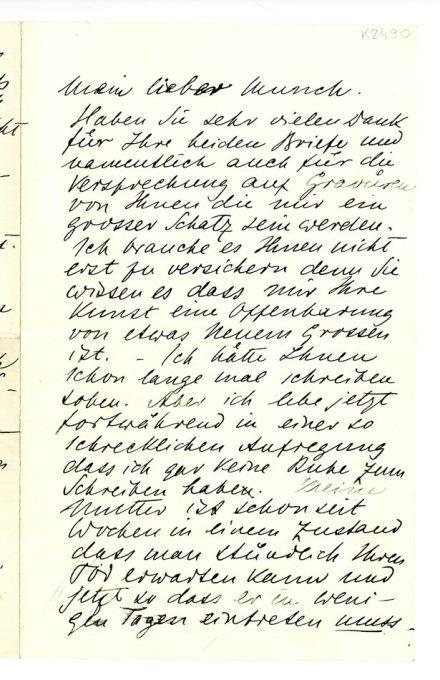 K2490
Mein lieber Munch.
Haben Sie sehr vielen Dank
für Ihre beiden Briefe und
namentlich auch für die
Versprechung auf Gravüren
von Ihnen die mir ein
grosser Schatz sein werden.
Ich brauche es Ihnen nicht
erst zu versichern denn Sie
wissen es dass mir Ihre
Kunst eine Offenbarung
von etwas Neuem Grossen
ist. – Ich hätte Ihnen
schon lange mal schreiben
sollen. Aber ich lebe jetzt
fortwährend in einer so
schrecklichen Aufregung
dass ich gar keine Ruhe zum
Schreiben haben. Meine
Mutter ist schon seit
Wochen in einem Zustand
dass man stündlich Ihren
Tod erwarten kann und
jetzt so dass er in weni-
gen Tagen eintreten muss.